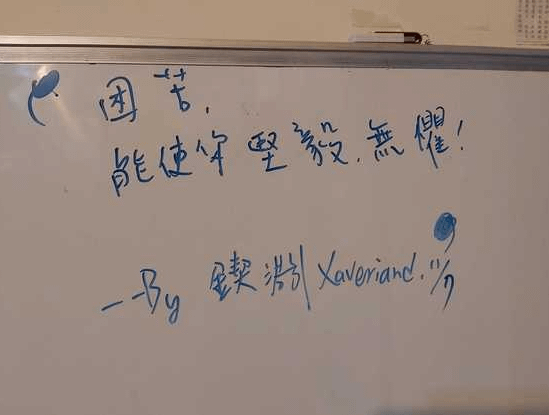 困苦,
能使你堅毅,無懼!
--By 鍥淵 Xaveriand. 11/7